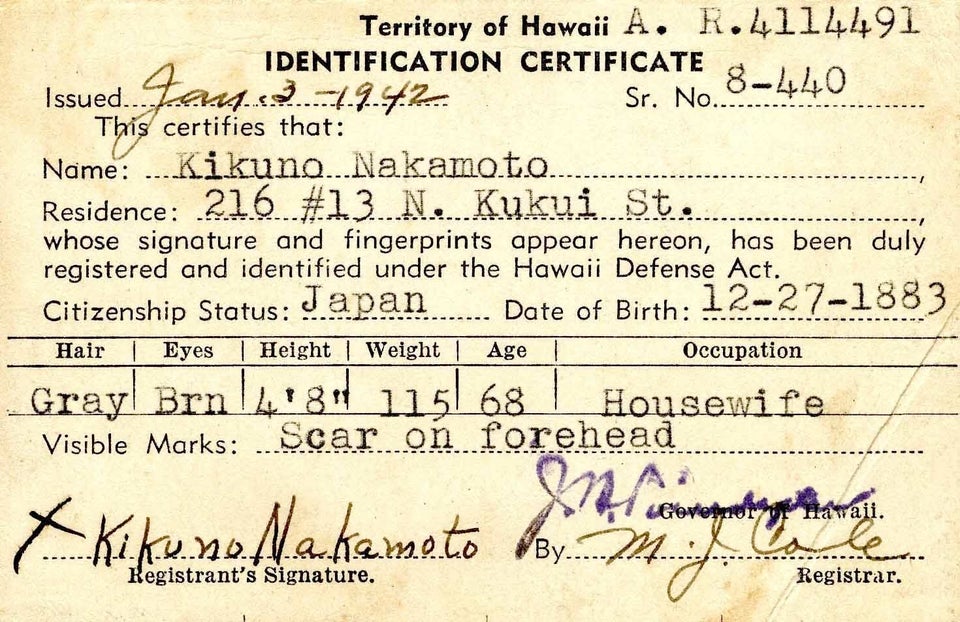 Territory of Hawaii A. R.4114491
IDENTIFICATION CERTIFICATE
Issued Jan. 3 - 1942 Sr. No. 8-440
This certifies that:
Name: Kikuno Nakamoto,
Residence: 216 #13 N. Kukui St.,
whose signature and fingerprints appear hereon, has been duly
registered and identified under the Hawaii Defense Act.
Citizenship Status: Japan Date of Birth: 12-27-1883
Hair | Eyes | Height | Weight | Age | Occupation
Gray | Brn | 4'8" | 115 | 68 | Housewife
Visible Marks: Scar on forehead
J. B.
Governor of Hawaii.
X Kikuno Nakamoto By M. J. Cole
Registrant's Signature. Registrar.